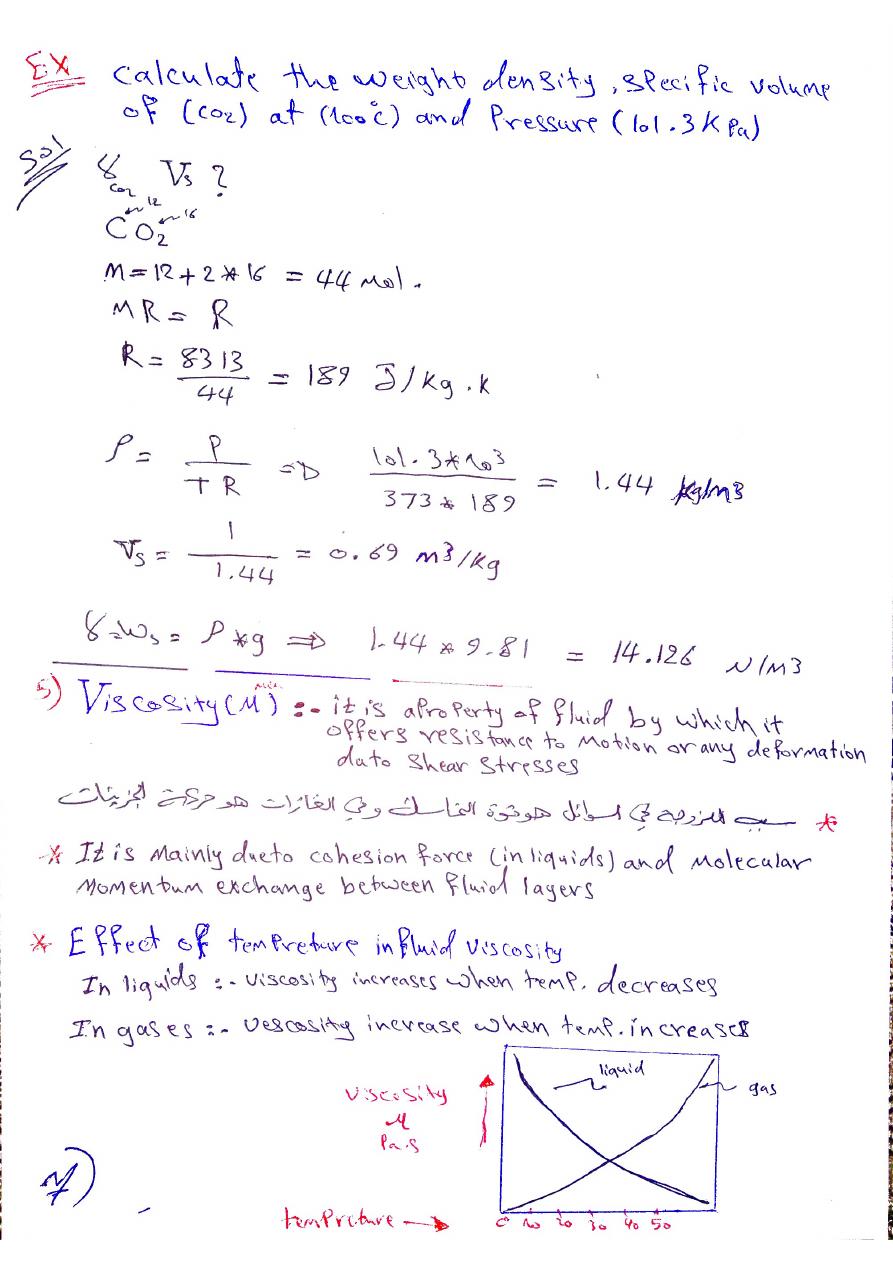 Ex Calculate the weight density, specific volume
of (CO2) at (100°C) and Pressure (101.3 KPa)
Sol
γ CO2 Vs ?
12 16
CO2
M = 12 + 2 * 16 = 44 mol.
MR = R
R = 8313 / 44 = 189 J/kg.k
ρ = P / TR => 101.3*10³ / 373 * 189 = 1.44 kg/m3
Vs = 1 / 1.44 = 0.69 m3/kg
γ = Ws = ρ * g => 1.44 * 9.81 = 14.126 N/m3
5) Viscosity (M) :- it is a Property of fluid by which it
offers resistance to Motion or any deformation
duto Shear Stresses
* سبب اللزوجة في السوائل هو قوة التماسك وفي الغازات هو حركة الجزيئات
* It is Mainly dueto cohesion force (in liquids) and Molecular
Momentum exchange between fluid layers
* Effect of tempreture in fluid viscosity
In liquids :- viscosity increases when temp. decreases
In gases :- vescosity increase when temp. increases
liquid
gas
Viscosity
M
Pa.s
0 10 20 30 40 50
tempreture
7)